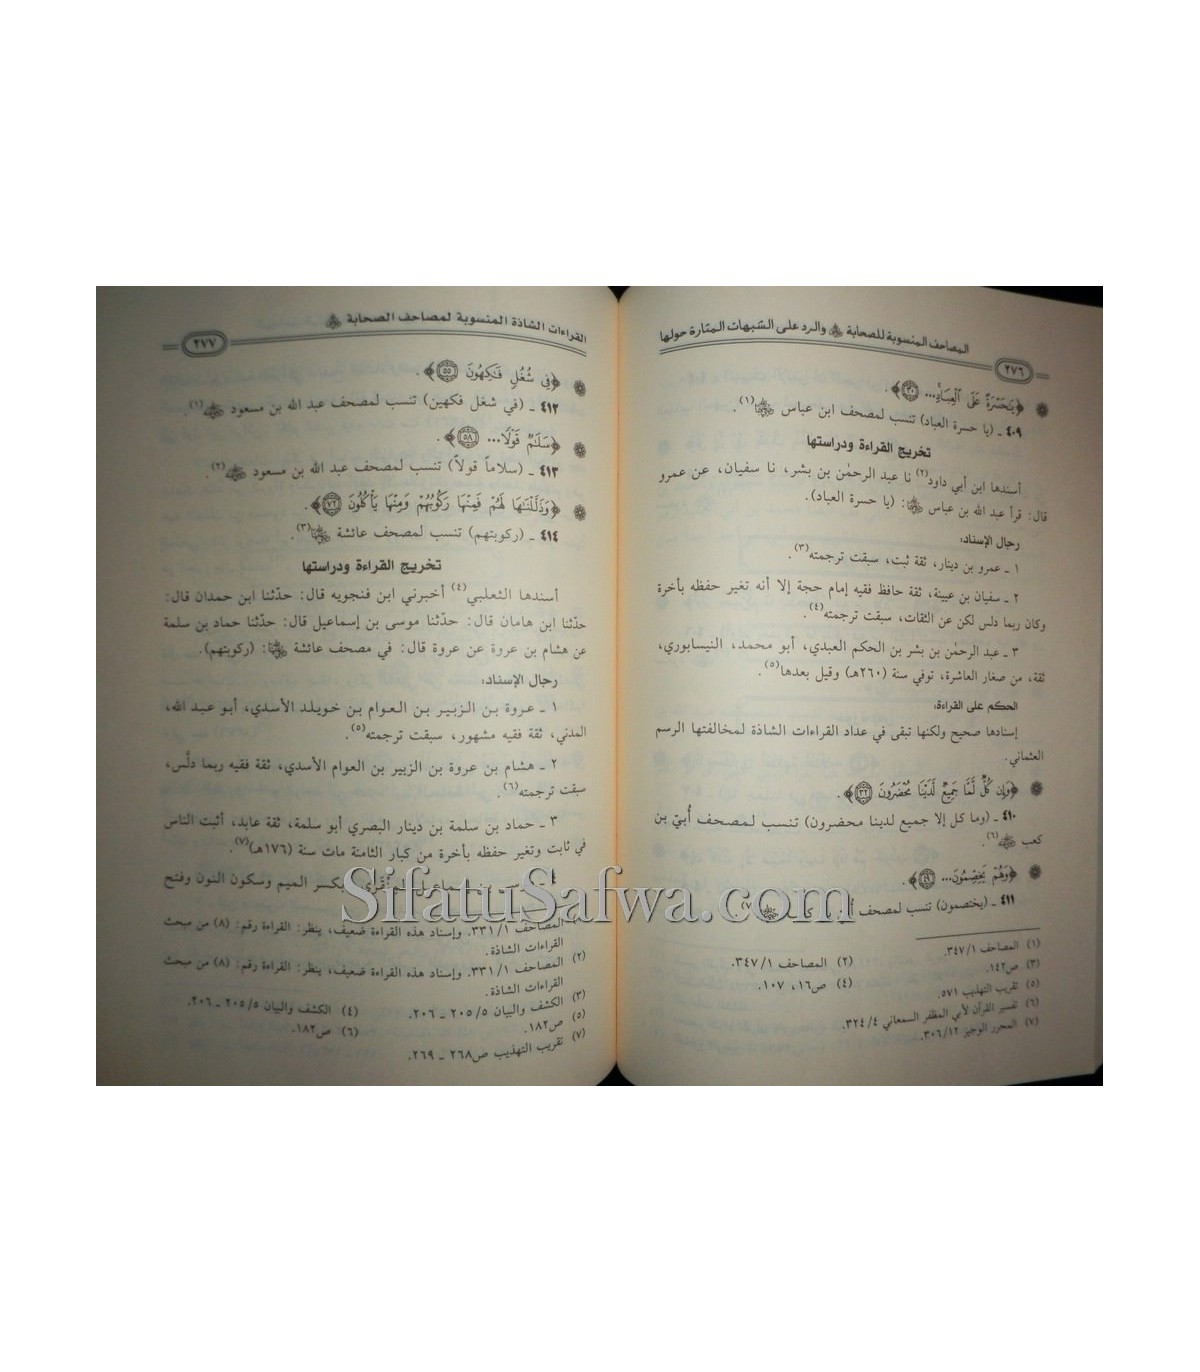 المصاحف المنسوبة للصحابة ﷺ والرد على الشبهات المثارة حولها
٢٧٦
﴿يَٰحَسْرَةً عَلَى ٱلْعِبَادِۚ... ﴿٣٠﴾﴾.
٤٠٩ ـ (يا حسرة العباد) تنسب لمصحف ابن عباس (١).
تخريج القراءة ودراستها
أسندها ابن أبي داود(٢) نا عبد الرحمٰن بن بشر، نا سفيان، عن عمرو
قال: قرأ عبد الله بن عباس : (يا حسرة العباد).
رجال الإسناد:
١ ـ عمرو بن دينار، ثقة ثبت، سبقت ترجمته(٣).
٢ ـ سفيان بن عيينة، ثقة حافظ فقيه إمام حجة إلا أنه تغير حفظه بأخرة
وكان ربما دلس لكن عن الثقات، سبقت ترجمته(٤).
٣ ـ عبد الرحمٰن بن بشر بن الحكم العبدي، أبو محمد، النيسابوري،
ثقة، من صغار العاشرة، توفي سنة (٢٦٠هـ) وقيل بعدها(٥).
الحكم على القراءة:
إسنادها صحيح ولكنها تبقى في عداد القراءات الشاذة لمخالفتها الرسم
العثماني.
﴿وَإِن كُلٌّ لَّمَّا جَمِيعٌ لَّدَيْنَا مُحْضَرُونَ ﴿٣٢﴾﴾.
٤١٠ ـ (وما كل إلا جميع لدينا محضرون) تنسب لمصحف أُبيّ بن
كعب (٦).
﴿وَهُمْ يَخِصِّمُونَ... ﴿٤٩﴾﴾.
٤١١ ـ (يختصمون) تنسب لمصحف أُبيّ بن كعب (٧).
(١) المصاحف ٣٤٧/١. (٢) المصاحف ٣٤٧/١.
(٣) ص١٤٢. (٤) ص١٦، ١٠٧.
(٥) تقريب التهذيب ٥٧١.
(٦) تفسير القرآن لأبي المظفر السمعاني ٣٢٤/٤.
(٧) المحرر الوجيز ٣٠٦/١٢.
القراءات الشاذة المنسوبة لمصاحف الصحابة
٢٧٧
﴿فِى شُغُلٍ فَٰكِهُونَ ﴿٥٥﴾﴾.
٤١٢ ـ (في شغل فكهين) تنسب لمصحف عبد الله بن مسعود (١).
﴿سَلَٰمٌ قَوْلًا... ﴿٥٨﴾﴾.
٤١٣ ـ (سلاماً قولاً) تنسب لمصحف عبد الله بن مسعود (٢).
﴿وَذَلَّلْنَٰهَا لَهُمْ فَمِنْهَا رَكُوبُهُمْ وَمِنْهَا يَأْكُلُونَ ﴿٧٢﴾﴾.
٤١٤ ـ (ركوبتهم) تنسب لمصحف عائشة (٣).
تخريج القراءة ودراستها
أسندها الثعلبي(٤) أخبرني ابن فنجويه قال: حدّثنا ابن حمدان قال:
حدّثنا ابن هامان قال: حدّثنا موسى بن إسماعيل قال: حدّثنا حماد بن سلمة
عن هشام بن عروة عن عروة قال: في مصحف عائشة : (ركوبتهم).
رجال الإسناد:
١ ـ عروة بن الزبير بن العوام بن خويلد الأسدي، أبو عبد الله،
المدني، ثقة فقيه مشهور، سبقت ترجمته(٥).
٢ ـ هشام بن عروة بن الزبير بن العوام الأسدي، ثقة فقيه ربما دلّس،
سبقت ترجمته(٦).
٣ ـ حماد بن سلمة بن دينار البصري أبو سلمة، ثقة عابد، أثبت الناس
في ثابت وتغير حفظه بأخرة من كبار الثامنة مات سنة (١٧٦هـ)(٧).
٤ ـ موسى بن إسماعيل المِنْقَري، بكسر الميم وسكون النون وفتح
(١) المصاحف ٣٣١/١. وإسناد هذه القراءة ضعيف، ينظر: القراءة رقم: (٨) من مبحث
القراءات الشاذة.
(٢) المصاحف ٣٣١/١. وإسناد هذه القراءة ضعيف، ينظر: القراءة رقم: (٨) من مبحث
القراءات الشاذة.
(٣) الكشف والبيان ٢٠٥/٥ ـ ٢٠٦. (٤) الكشف والبيان ٢٠٥/٥ ـ ٢٠٦.
(٥) ص١٨٢. (٦) ص١٨٢.
(٧) تقريب التهذيب ص٢٦٨ ـ ٢٦٩.
SifatuSafwa.com